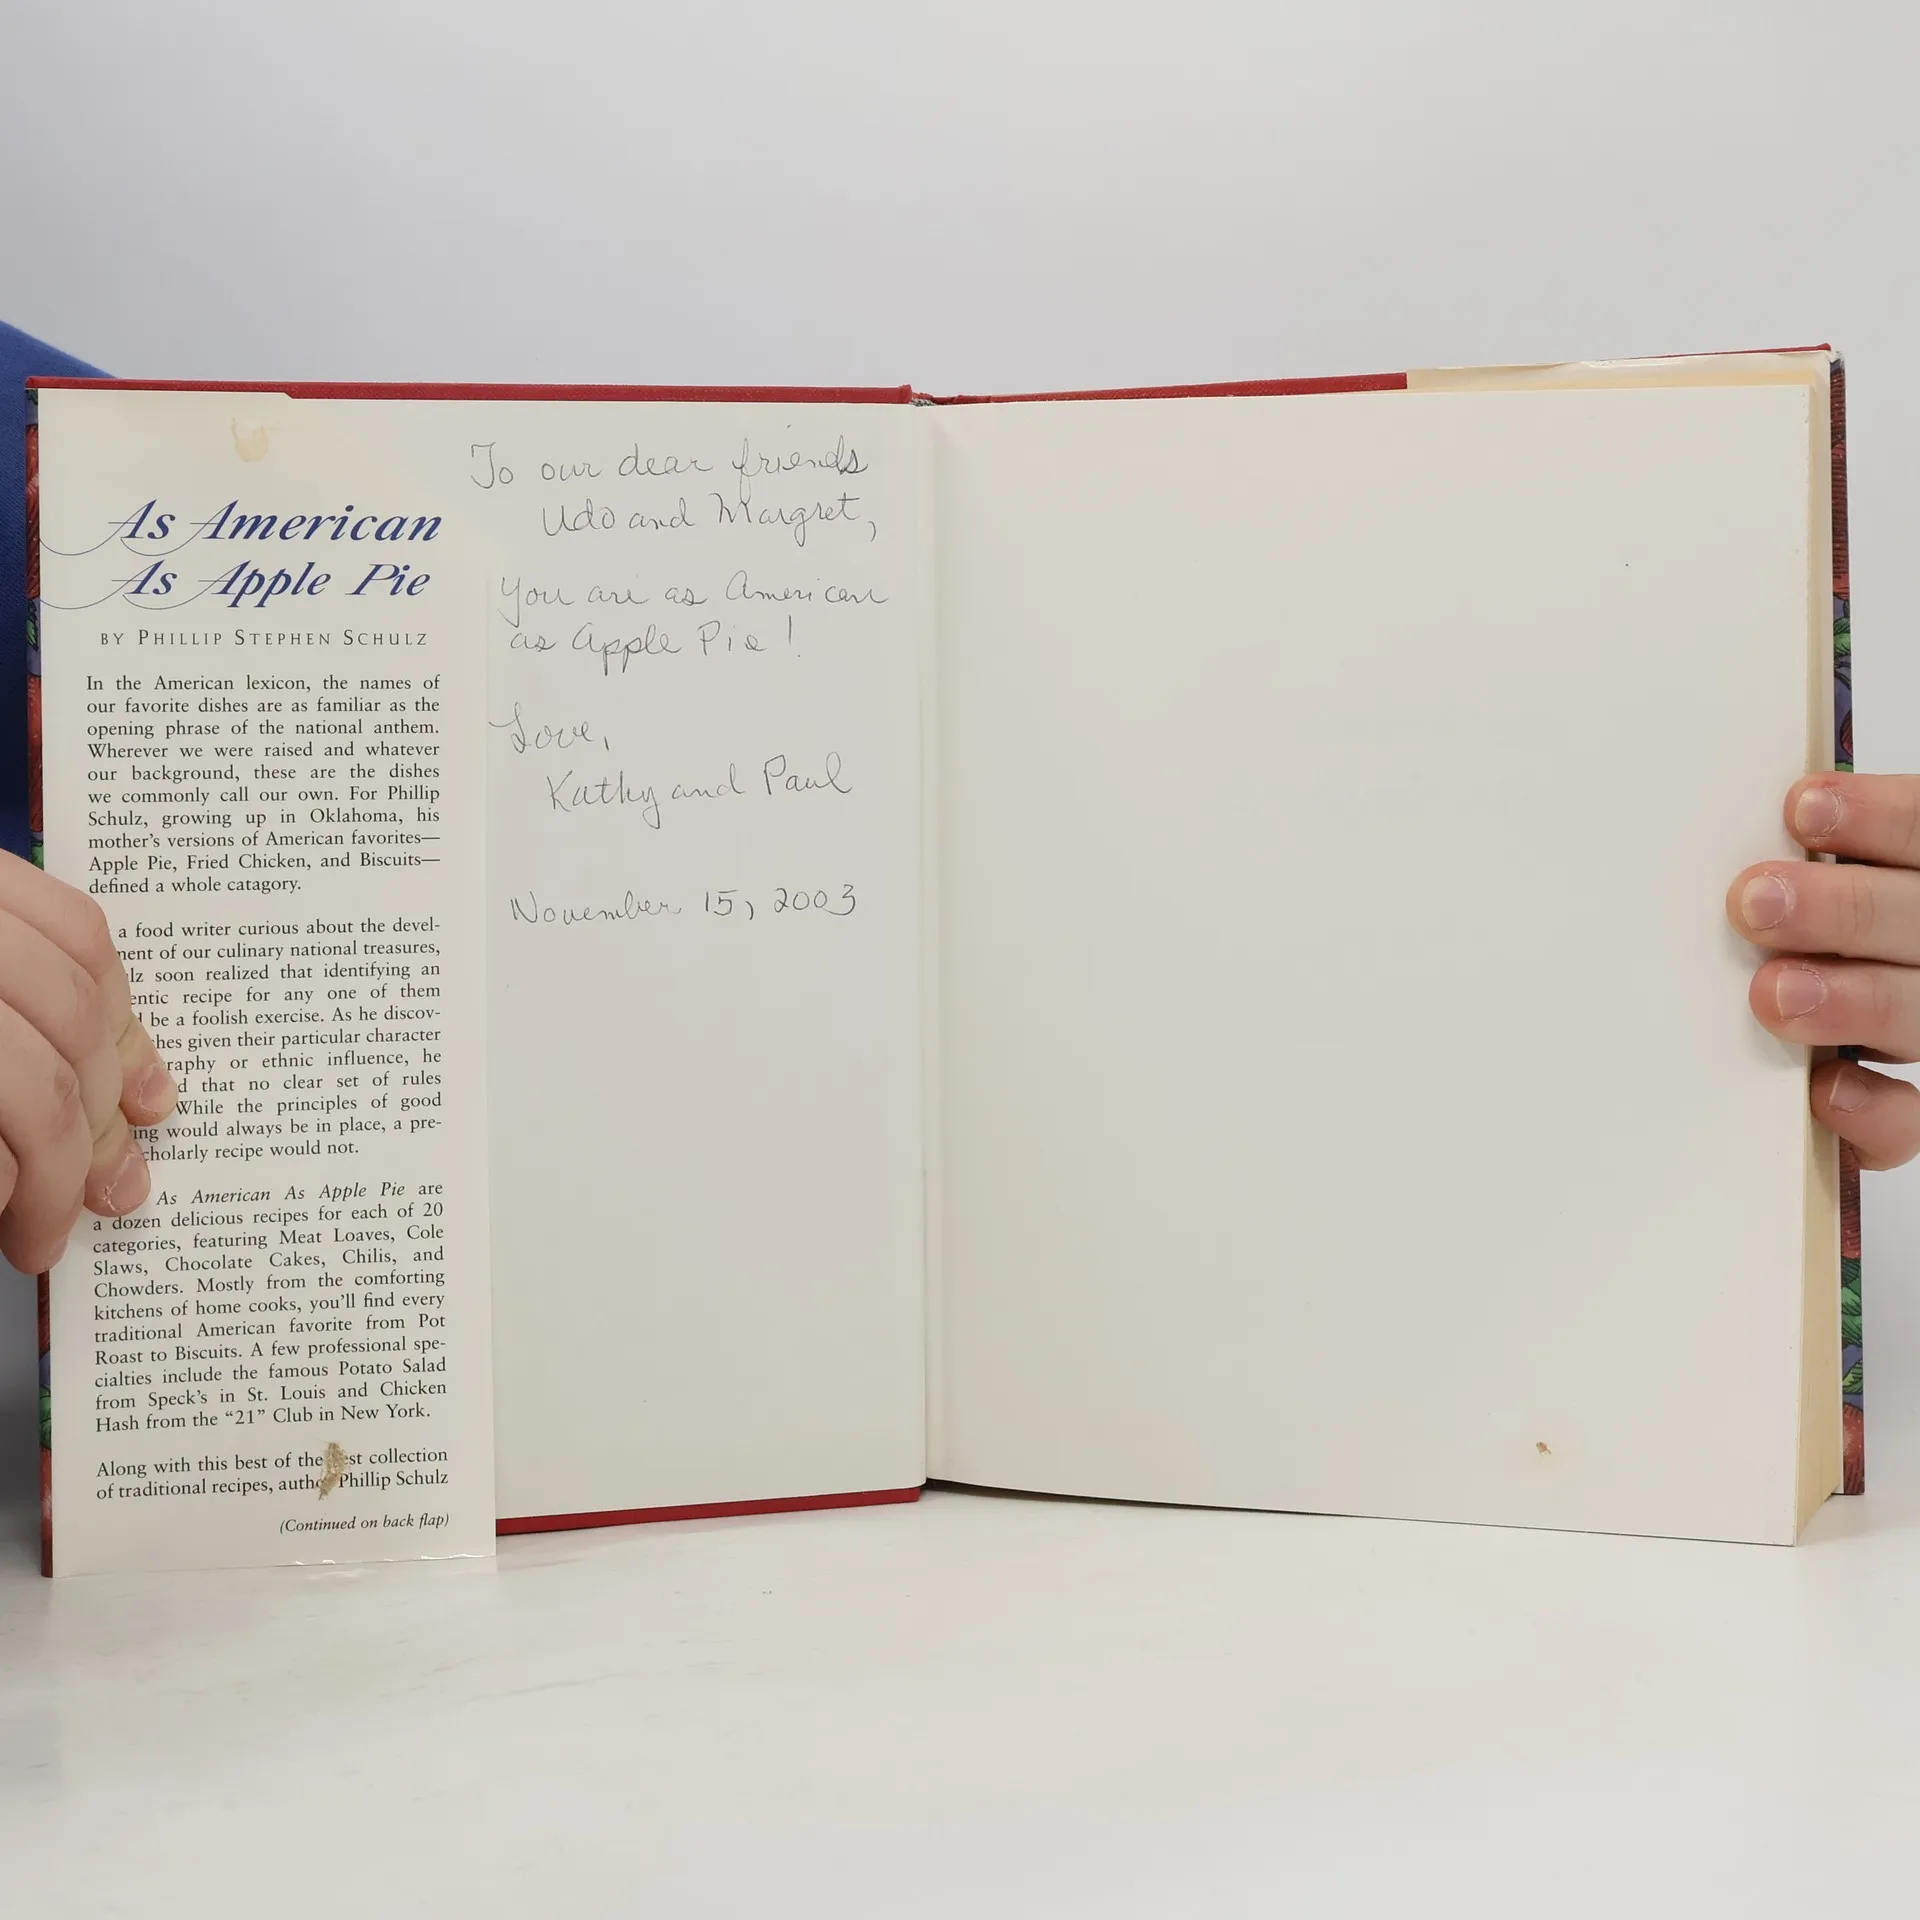 As American
As Apple Pie
BY PHILLIP STEPHEN SCHULZ
In the American lexicon, the names of
our favorite dishes are as familiar as the
opening phrase of the national anthem.
Wherever we were raised and whatever
our background, these are the dishes
we commonly call our own. For Phillip
Schulz, growing up in Oklahoma, his
mother's versions of American favorites—
Apple Pie, Fried Chicken, and Biscuits—
defined a whole catagory.
a food writer curious about the devel-
ment of our culinary national treasures,
lz soon realized that identifying an
entic recipe for any one of them
be a foolish exercise. As he discov-
hes given their particular character
raphy or ethnic influence, he
d that no clear set of rules
While the principles of good
ing would always be in place, a pre-
cholarly recipe would not.
As American As Apple Pie are
a dozen delicious recipes for each of 20
categories, featuring Meat Loaves, Cole
Slaws, Chocolate Cakes, Chilis, and
Chowders. Mostly from the comforting
kitchens of home cooks, you'll find every
traditional American favorite from Pot
Roast to Biscuits. A few professional spe-
cialties include the famous Potato Salad
from Speck's in St. Louis and Chicken
Hash from the "21" Club in New York.
Along with this best of the est collection
of traditional recipes, autho Phillip Schulz
(Continued on back flap)
To our dear friends
Udo and Margret,
You are as American
as Apple Pie!
Love,
Kathy and Paul
November 15, 2003